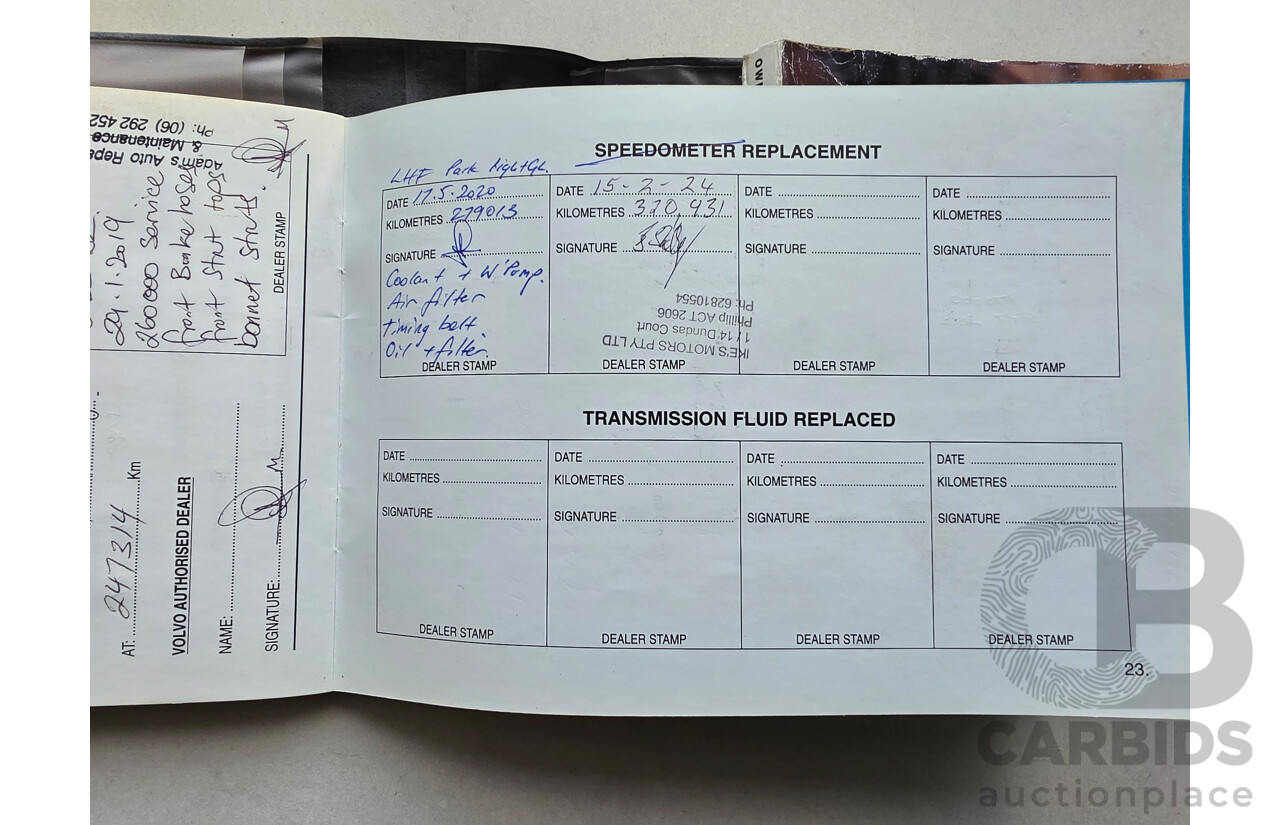 Adam's Auto Repa
& Maintenance
Ph: (06) 292 452
29.1.2019
260000 Service
front Brake hoses
front strut tops
bonnet struts.
DEALER STAMP
AT: 247314 Km
VOLVO AUTHORISED DEALER
NAME:
SIGNATURE:
OWN
SPEEDOMETER REPLACEMENT
LHF Park Light Gl.
DATE 17.5.2020
KILOMETRES 279013
SIGNATURE
Coolant + W'Pump.
Air filter
timing belt
Oil + filter.
DEALER STAMP
DATE 15-2-24
KILOMETRES 320,931
SIGNATURE
IKE'S MOTORS PTY LTD
1/14 Dundas Court
Phillip ACT 2606
Ph: 62810554
DEALER STAMP
DATE
KILOMETRES
SIGNATURE
DEALER STAMP
DATE
KILOMETRES
SIGNATURE
DEALER STAMP
TRANSMISSION FLUID REPLACED
DATE
KILOMETRES
SIGNATURE
DEALER STAMP
DATE
KILOMETRES
SIGNATURE
DEALER STAMP
DATE
KILOMETRES
SIGNATURE
DEALER STAMP
DATE
KILOMETRES
SIGNATURE
DEALER STAMP
23.
CB
CARBIDS
auctionplace